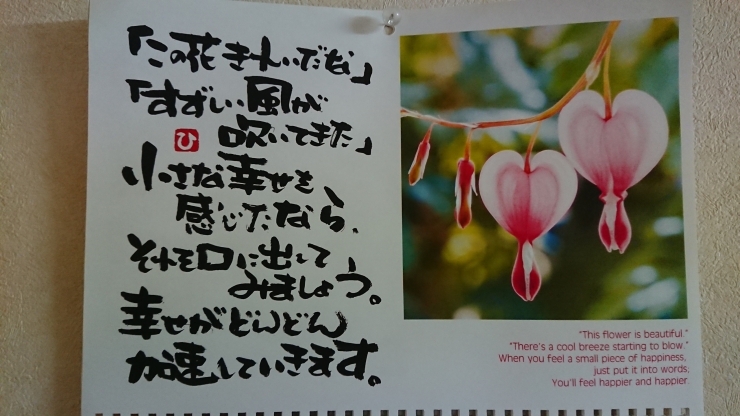 「この花きれいだな」
「すずしい風が
ひ
吹いてきた」
小さな幸せを
感じたなら、
それを口に出して
みましょう。
幸せがどんどん
加速していきます。
"This flower is beautiful."
"There's a cool breeze starting to blow."
When you feel a small piece of happiness,
just put it into words.
You'll feel happier and happier.